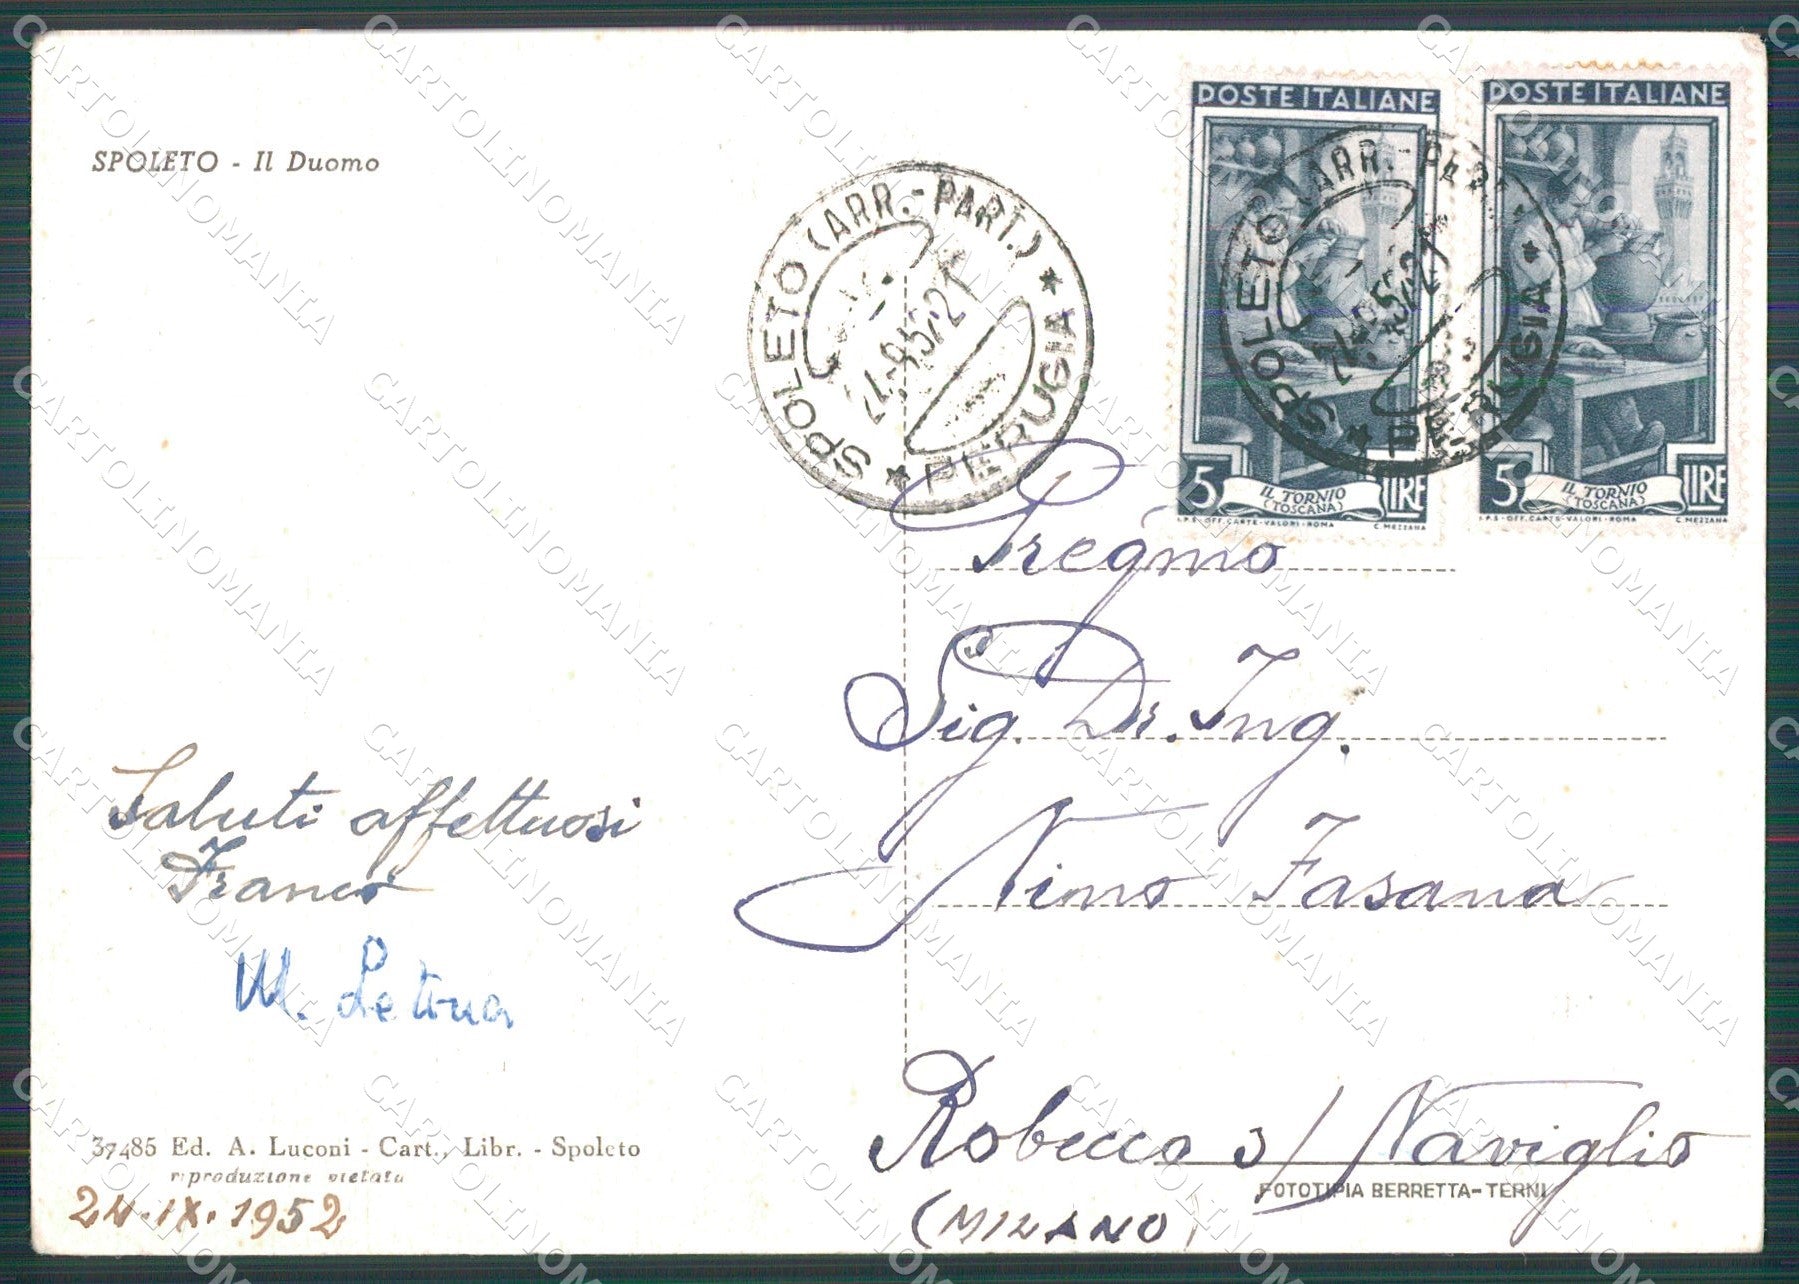 SPOLETO - Il Duomo
POSTE ITALIANE
5 LIRE
IL TORNIO
(TOSCANA)
I.P.S - OFF. CARTE - VALORI - ROMA C. MEZZANA
POSTE ITALIANE
5 LIRE
IL TORNIO
(TOSCANA)
I.P.S - OFF. CARTE - VALORI - ROMA C. MEZZANA
SPOLETO (ARR.-PART.) * PERUGIA *
24.-9.52.21
SPOLETO (ARR.-PART.) * PERUGIA *
Preg͞mo
Sig. Dr. Ing.
Nino Fasana
Robecco s/ Naviglio
(MILANO)
Saluti affettuosi
Franco
M.
37485 Ed. A. Luconi - Cart., Libr. - Spoleto
riproduzione vietata
24.IX.1952
FOTOTIPIA BERRETTA-TERNI
CARTOLINOMANIA